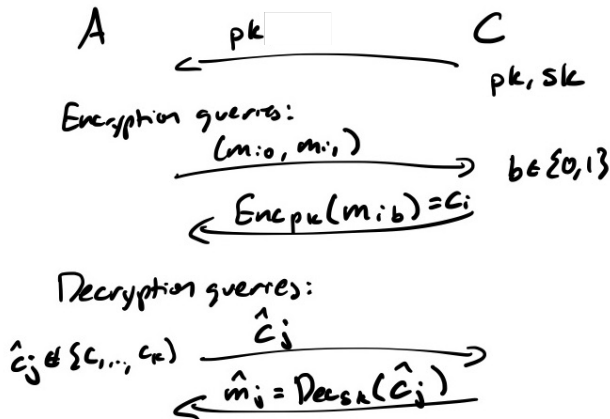 A pk C
pk, sk
Encryption queries:
(m_{i0}, m_{i1})
b∈{0,1}
Enc_{pk}(m_{ib}) = c_i
Decryption querries:
ĉ_j ∉ {c_1, ..., c_k} ĉ_j
m̂_j = Dec_{sk}(ĉ_j)